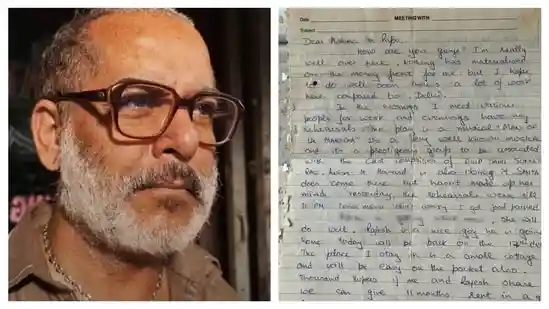 Date
MEETING WITH
Subject
Dear Mamma n Papa,
How are you guys? I'm really
well over here. Nothing has materialised
on the money front for me but I hope
to do well soon here's a lot of work
here compared to Delhi.
In the mornings I meet various
people for work and evenings have my
rehearsals. The play is a musical "Man of
La Mancha" it's a very well known musical
and it's a prestigeous group to be associated
with the Cast comprises of Dilip
is also doing it
does come there but hasn't made up her
minds. Yesterday, the rehearsals were till
11 PM. don't worry I get food packed
She will
do well. Rajesh is a nice guy he is going
home today will be back on the 17th
The place I stay in is a small cottage
and will be easy on the pocket also.
thousand rupees if me and Rajesh share
we can give 11 months rent in a